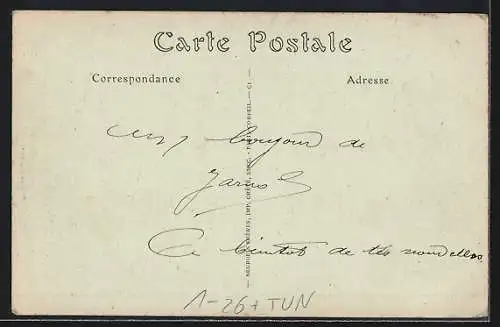 Carte Postale
Correspondance
Adresse
un bonjour de
A bientot de tes nouvelles
1-26 + TUN